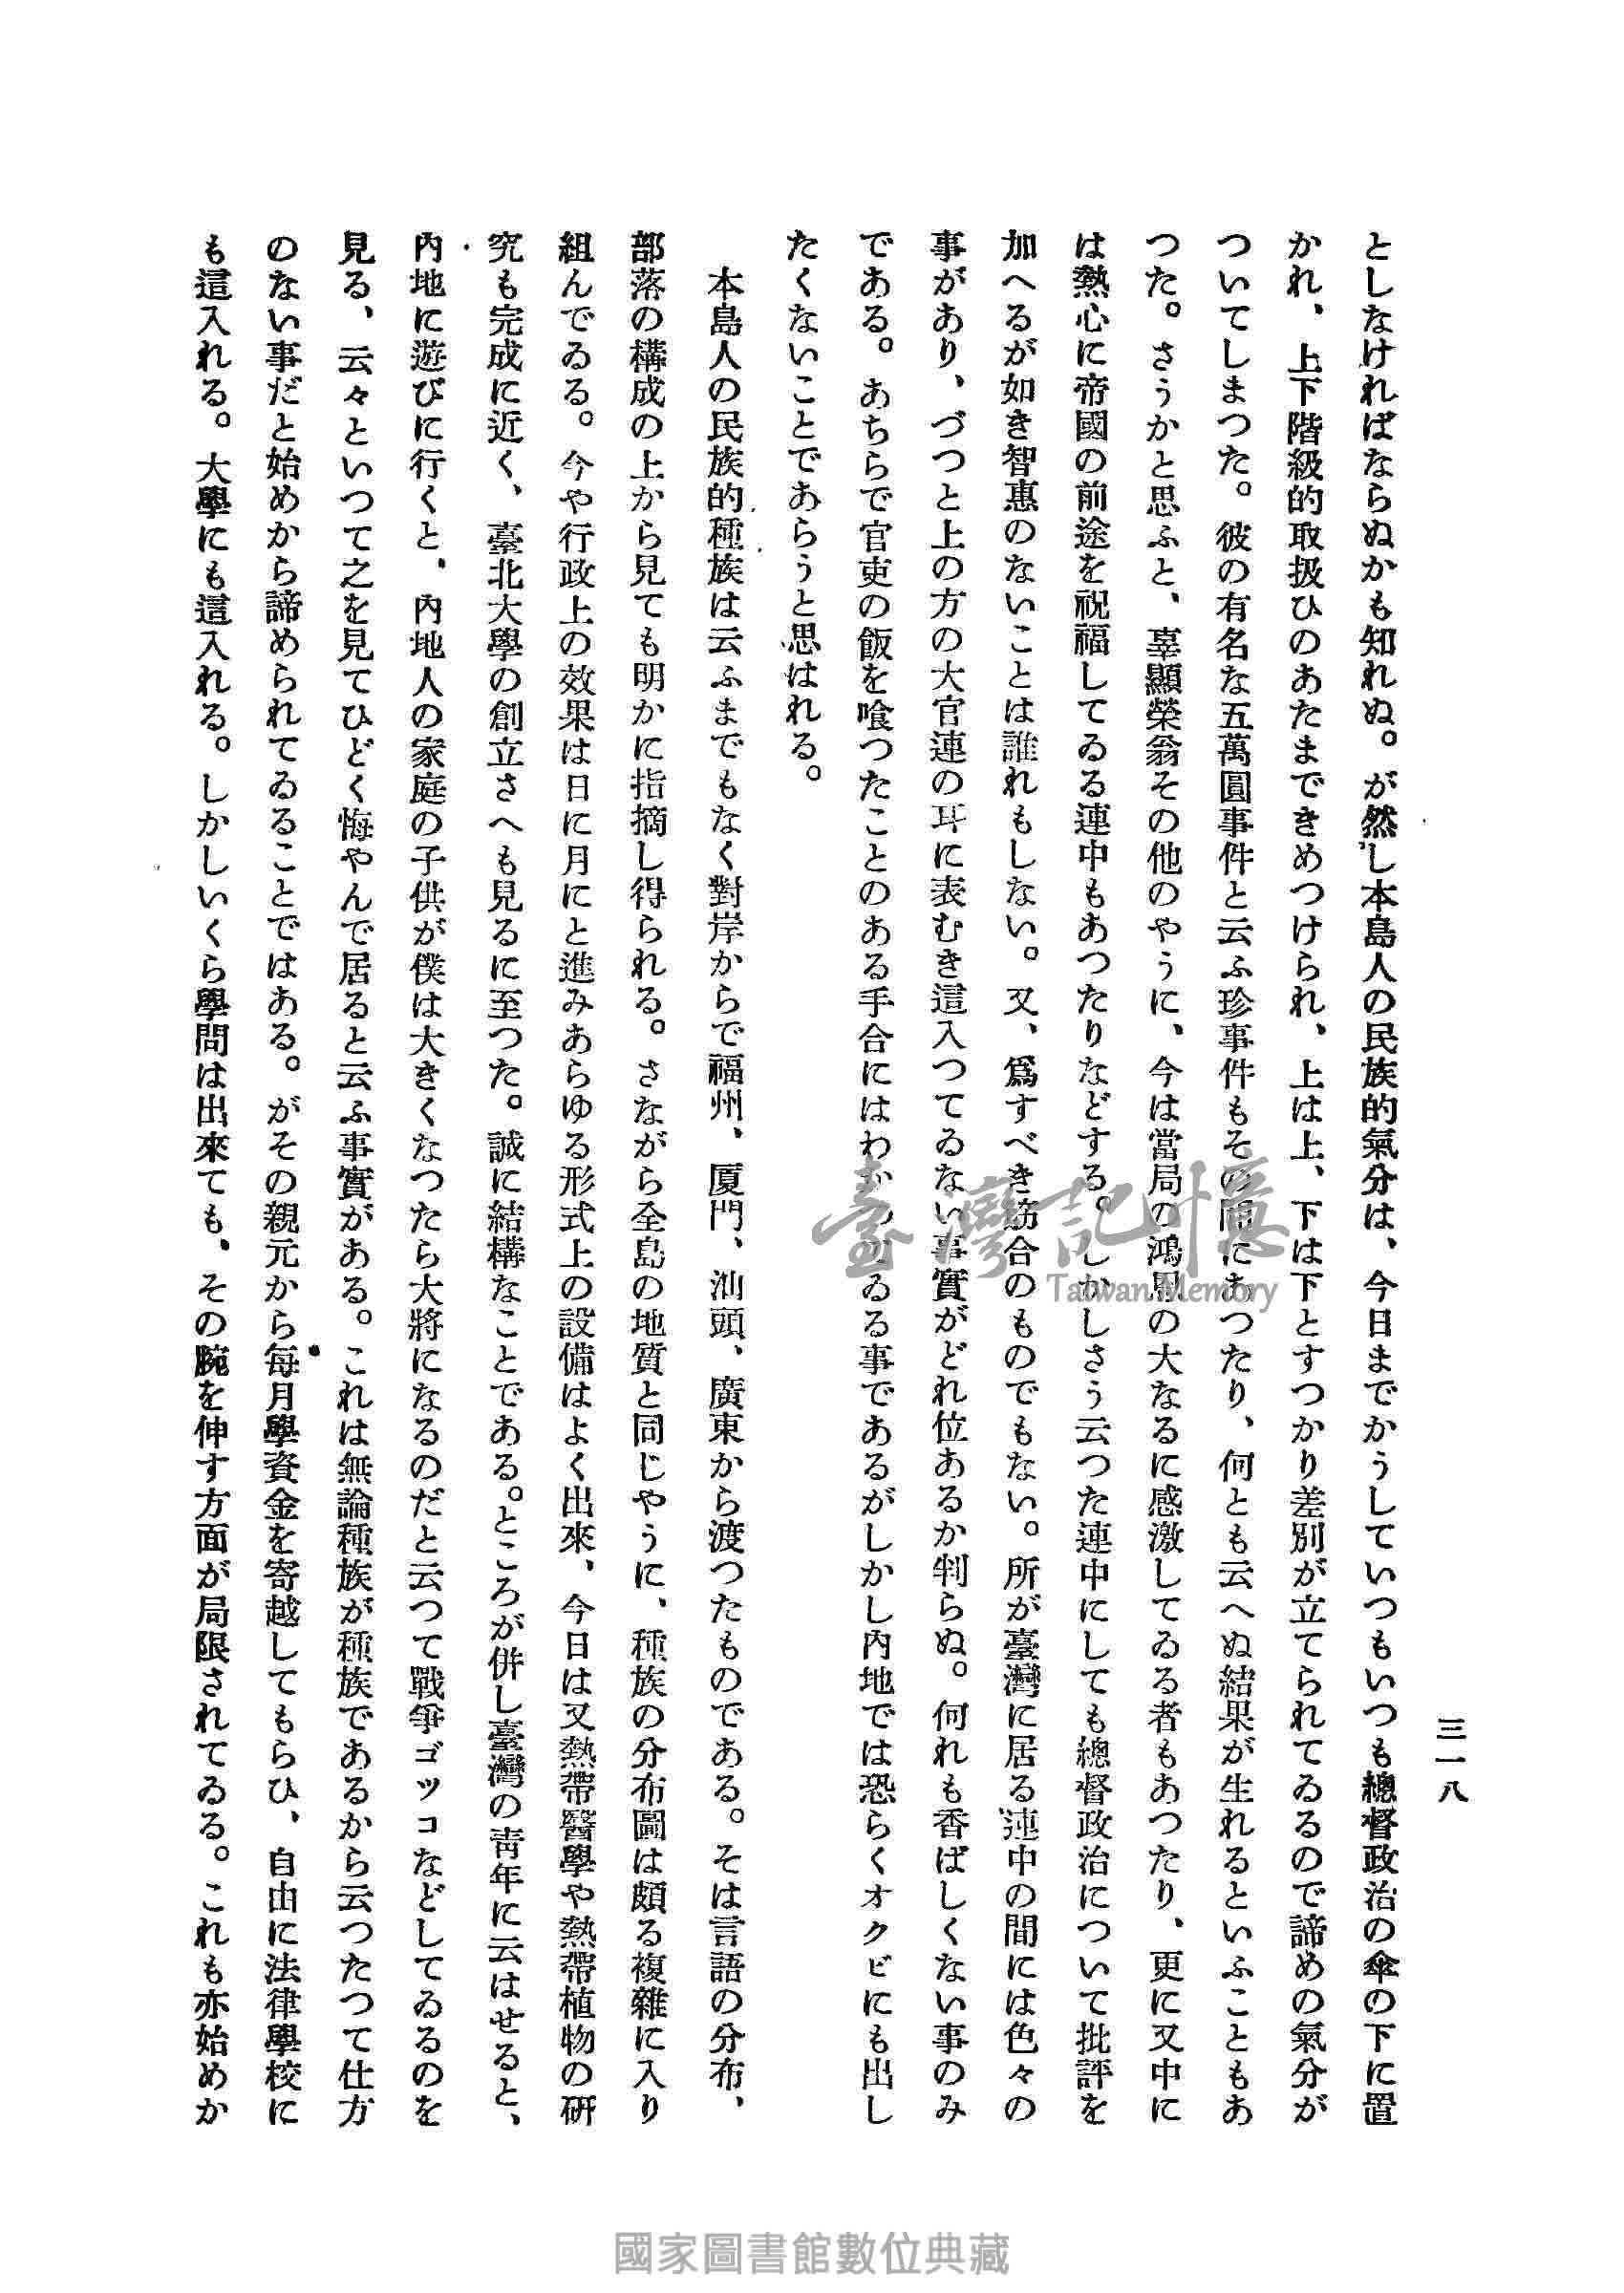 三一八
としなければならぬかも知れぬ。が然し本島人の民族的氣分は、今日までかうしていつもいつも總督政治の傘の下に置
かれ、上下階級的取扱ひのあたまできめつけられ、上は上、下は下とすつかり差別が立てられてゐるので諦めの氣分が
ついてしまつた。彼の有名な五萬圓事件と云ふ珍事件もその間にあつたり、何とも云へぬ結果が生れるといふこともあ
つた。さうかと思ふと、辜顯榮翁その他のやうに、今は當局の鴻恩の大なるに感激してゐる者もあつたり、更に又中に
は熱心に帝國の前途を祝福してゐる連中もあつたりなどする。しかしさう云つた連中にしても總督政治について批評を
加へるが如き智惠のないことは誰れもしない。又、爲すべき筋合のものでもない。所が臺灣に居る連中の間には色々の
事があり、づつと上の方の大官連の耳に表むき這入つてゐない事實がどれ位あるか判らぬ。何れも香ばしくない事のみ
である。あちらで官吏の飯を喰つたことのある手合にはわかつてゐる事であるがしかし內地では恐らくオクビにも出し
たくないことであらうと思はれる。
本島人の民族的種族は云ふまでもなく對岸からで福州、厦門、汕頭、廣東から渡つたものである。そは言語の分布、
部落の構成の上から見ても明かに指摘し得られる。さながら全島の地質と同じやうに、種族の分布圖は頗る複雜に入り
組んでゐる。今や行政上の效果は日に月にと進みあらゆる形式上の設備はよく出來、今日は又熱帶醫學や熱帶植物の硏
究も完成に近く、臺北大學の創立さへも見るに至つた。誠に結構なことである。ところが併し臺灣の靑年に云はせると、
內地に遊びに行くと、內地人の家庭の子供が僕は大きくなつたら大將になるのだと云つて戰爭ゴツコなどしてゐるのを
見る、云々といつて之を見てひどく悔やんで居ると云ふ事實がある。これは無論種族が種族であるから云つたつて仕方
のない事だと始めから諦められてゐることではある。がその親元から每月學資金を寄越してもらひ、自由に法律學校に
も這入れる。大學にも這入れる。しかしいくら學問は出來ても、その腕を伸す方面が局限されてゐる。これも亦始めか
臺灣記憶
Taiwan Memory
國家圖書館數位典藏